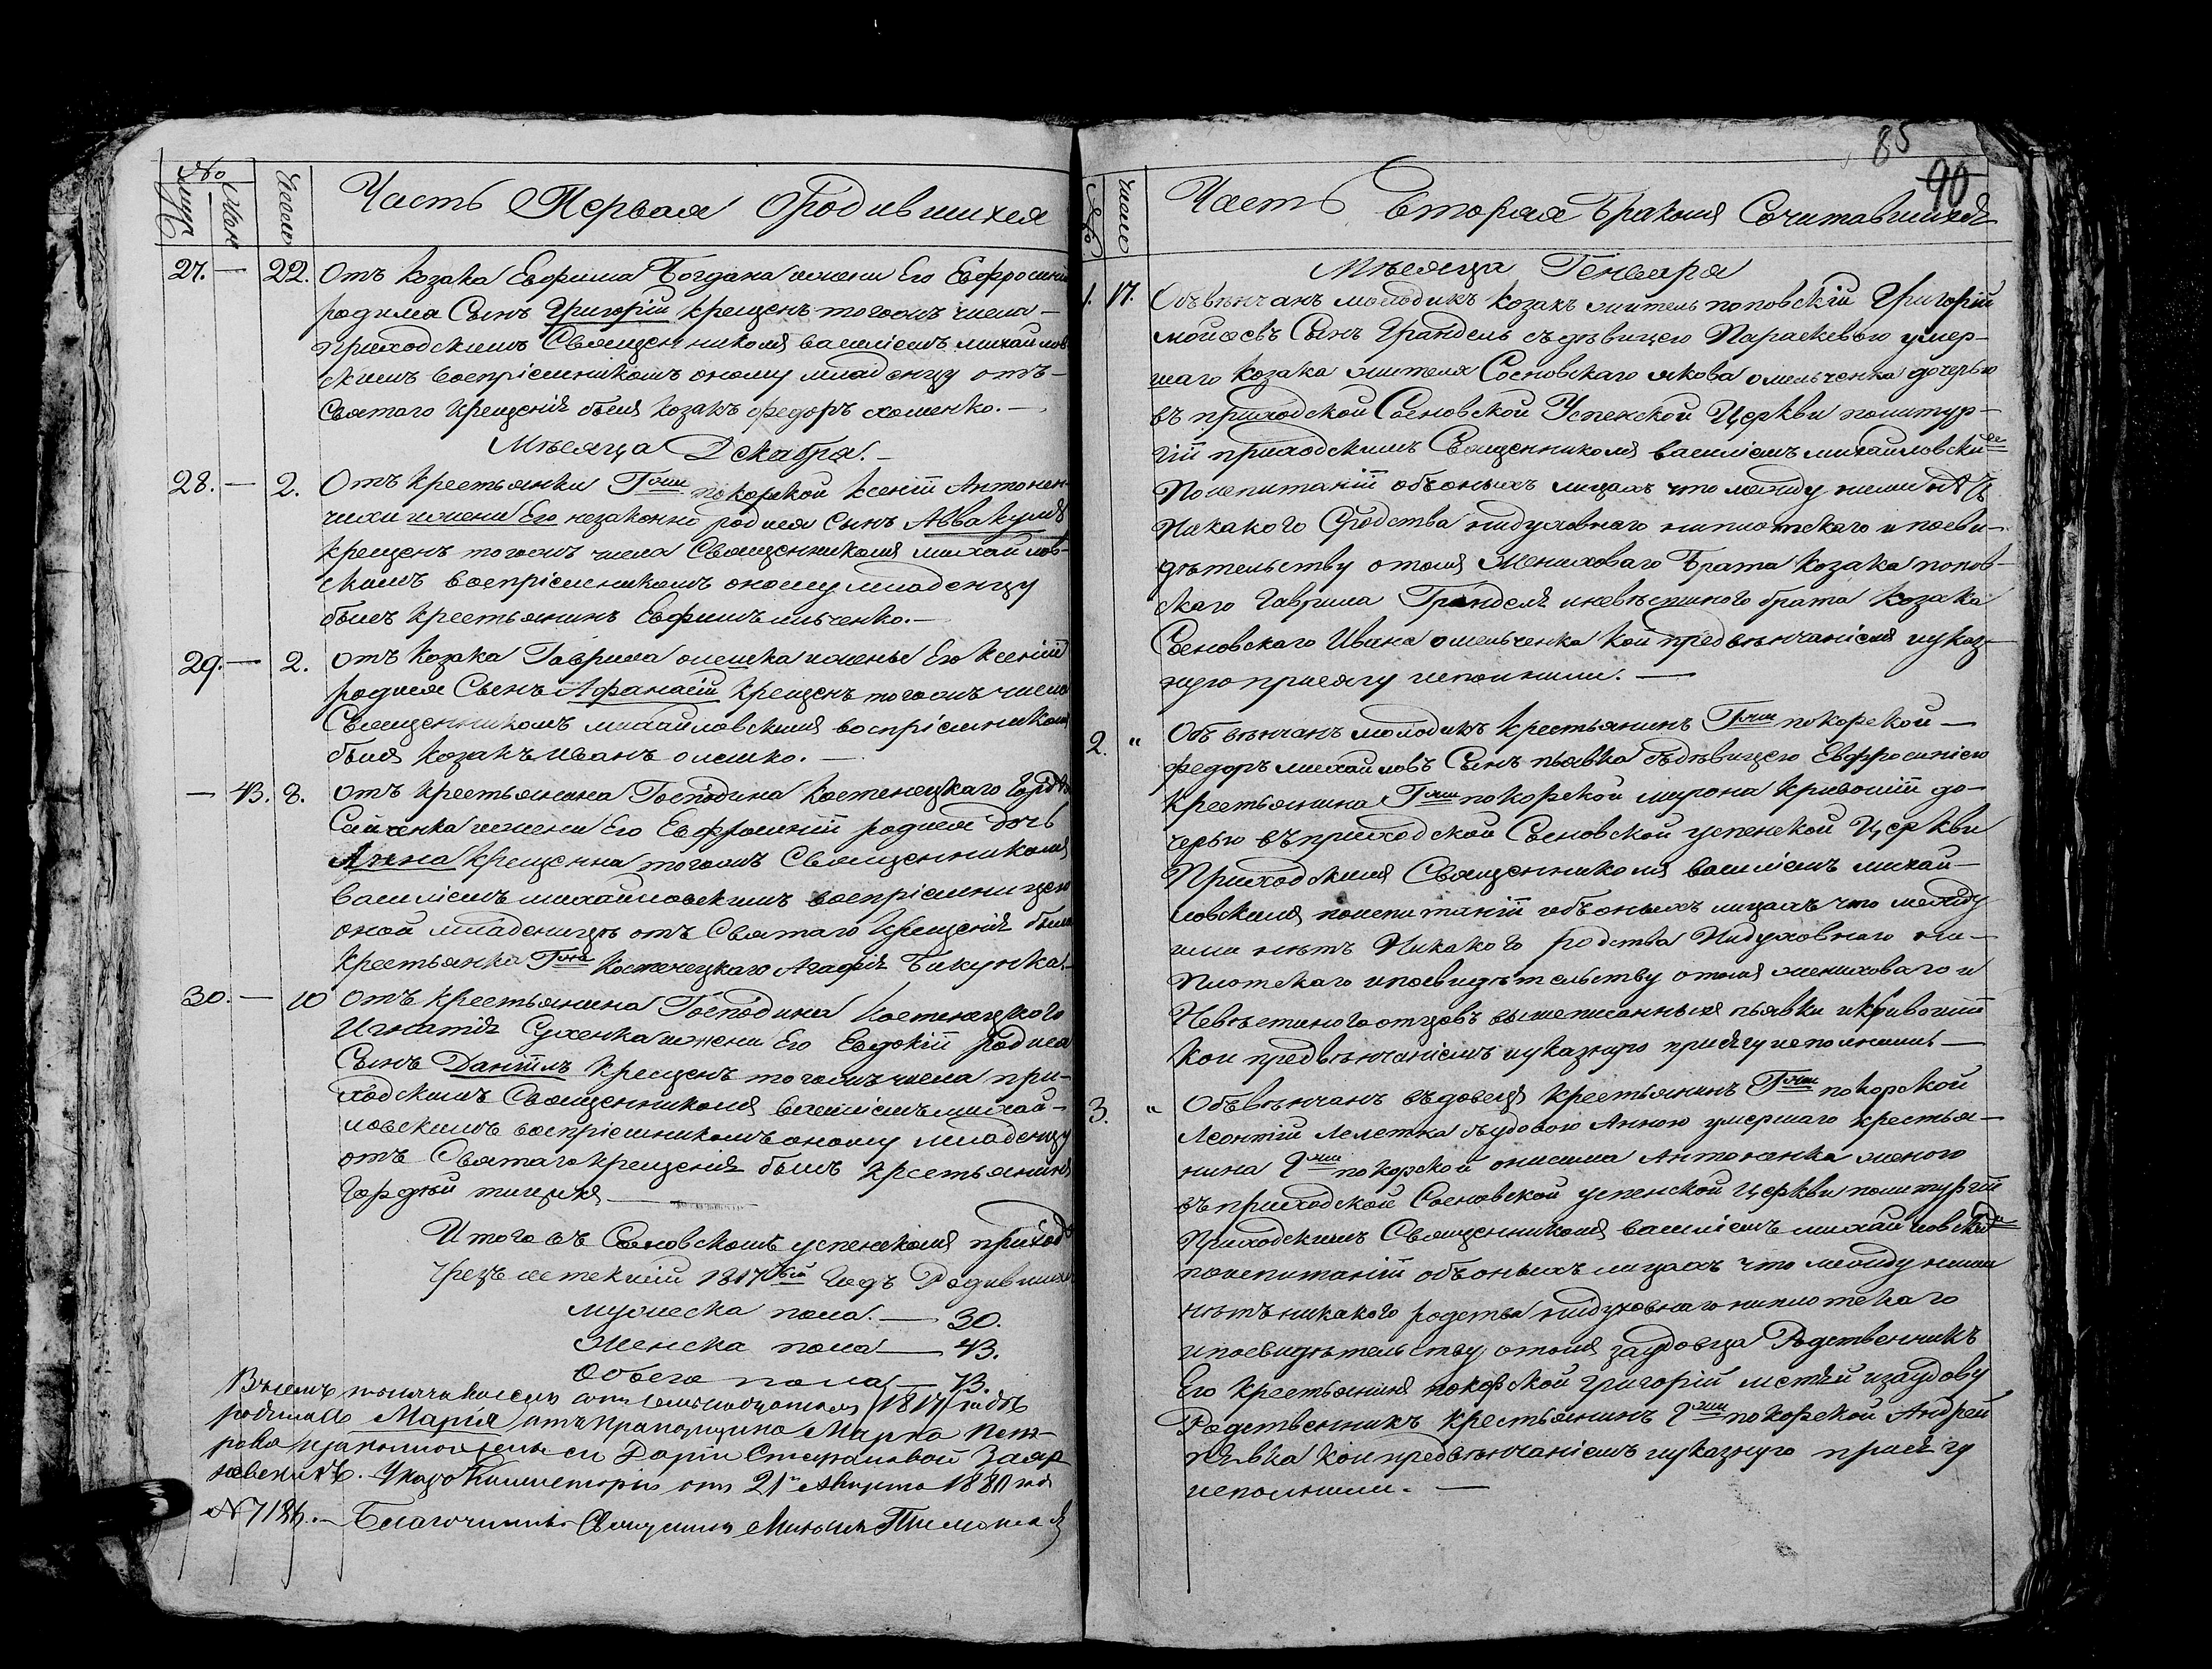 №
Муж
Жен
Число
Часть Первая О родившихся
27. — 22. Отъ козака Евфима Богдана и жени Его Евфросиніи
родился Сынъ Григорій крещенъ тогожъ числа —
приходскимъ Священникомъ василіемъ михайлов-
скимъ воспріемникомъ оному младенцу отъ
Святаго Крещенія былъ козакъ федоръ хоменко. —
Мѣсяца Декабря. —
28. — 2. Отъ крестьянки Гжи покорской Ксеніи Антонен-
чихи и жени Его незаконно родился сынъ Аввакумъ
крещенъ тогожъ числа Священникомъ михайлов-
скимъ воспріемникомъ оному младенцу
былъ крестьянинъ Евфимъ ильченко. —
29. — 2. Отъ козака Гаврила олешка и жены Его Ксеніи
родился Сынъ Афанасій крещенъ тогожъ числа
Священникомъ михайловскимъ воспріемникомъ
былъ козакъ Иванъ олешко. —
— 43. 8. Отъ крестьянина Господина Костенецкаго Гордѣя
Сайченка и жени Его Евфросиніи родилась дочь
Анна крещенна тогожъ Священникомъ
василіемъ михайловскимъ воспріемницею
оной младеницѣ отъ Святаго Крещенія была
крестьянка Гна Костенецкаго Агафія Бикунка
30. — 10 Отъ крестьянина Господина Костенецкого
Игнатія Сухенка и жени Его Евдокіи родился
Сынъ Даніилъ крещенъ тогожъ числа при-
ходскимъ Священникомъ василіемъ михай-
ловскимъ воспріемникомъ оному младенцу
отъ Святаго крещенія былъ крестьянинъ
Гордѣй —
Итого въ Сосновскомъ успенскомъ приходѣ
чрезъ истекшій 1817тый Годъ Родившихся
мужеска пола. — 30.
Женска пола — 43.
Обоего пола — 73.
Въ семъ тысяча восемь сотъ семнадцатомъ /1817/ годѣ
родилась Марія отъ прапорщика Марка Пет-
рова и законной жены его Даріи Стефановой
Указъ Консисторіи отъ 21го Августа 1880 года
№ 7186. — Благочинный Священникъ
85
90
№
Число
Часть Вторая Бракомъ Сочитавшихся
Мѣсяца Генваря
1. 17. Объвѣнчанъ молодикъ козакъ житель поповскій Григорій
мойсѣевъ Сынъ Грандель съ дѣвицею Параскевою умер-
шаго козака жителя Сосновскаго якова омельченка дочерью
въ приходской Сосновской Успенской Церкви по литур-
гіи приходскимъ Священникомъ василіемъ михайловски
По испитаніи объ оныхъ лицахъ что между ними нѣтъ
Никакого Сродства ни духовнаго ни плотскаго и по сви-
дѣтельству о томъ Жениховаго Брата козака попов-
скаго Гаврила Гранделя и невѣстиного брата козака
Сосновскаго Ивана омельченка кои предъ вѣнчаніемъ и указ-
ную присягу исполнили. —
2. " Объвѣнчанъ молодикъ крестьянинъ Гжи покорской —
федоръ михайловъ Сынъ пьявка съ дѣвицею Евфросиніею
крестьянина Гжи покорской мирона кривошіи до-
черью въ приходской Сосновской успенской Церкви
Приходскимъ Священникомъ василіемъ михай-
ловскимъ по испитаніи объ оныхъ лицахъ что между
ими нѣтъ Никакого родства Ни духовнаго ни —
плотскаго и по свидѣтельству о томъ жениховаго и
Невѣстиного отцовъ вышеписанныхъ пьявки и кривошіи
кои предъ вѣнчаніемъ и указную присягу исполнили —
3. " Объвѣнчанъ въдовецъ крестьянинъ Гжи покорской
Леонтій Лелетка съ удовою Анною умершаго крестья-
нина Гжи покорской онисима Антоненка женою
въ приходской Сосновской успенской Церкви по литургіи
Приходскимъ Священникомъ василіемъ михайловски
по испитаніи объ оныхъ лицахъ что между ними
нѣтъ никакого родства ни духовнаго ни плотскаго
и по свидѣтельству о томъ за удовца Родственникъ
Его крестьянинъ покорской Григорій и за удову
Родственникъ крестьянинъ Гжи покорской Андрей
пьявка кои предъ вѣнчаніемъ и указную присягу
исполнили. —